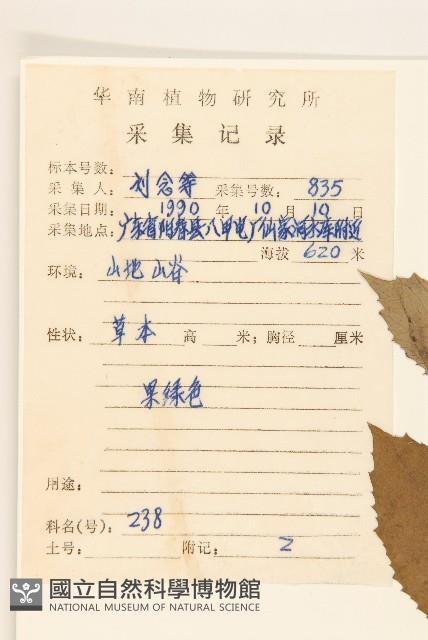 华南植物研究所
采集记录
标本号数:
采集人: 刘念等 采集号数: 835
采集日期: 1990 年 10 月 10 日
采集地点: 广东省阳春县八甲电厂仙家洞水库附近
海拔 620 米
环境: 山地 山谷
性状: 草本 高 米; 胸径 厘米
果绿色
用途:
科名(号): 238
土号: 附记: 2
國立自然科學博物館
NATIONAL MUSEUM OF NATURAL SCIENCE